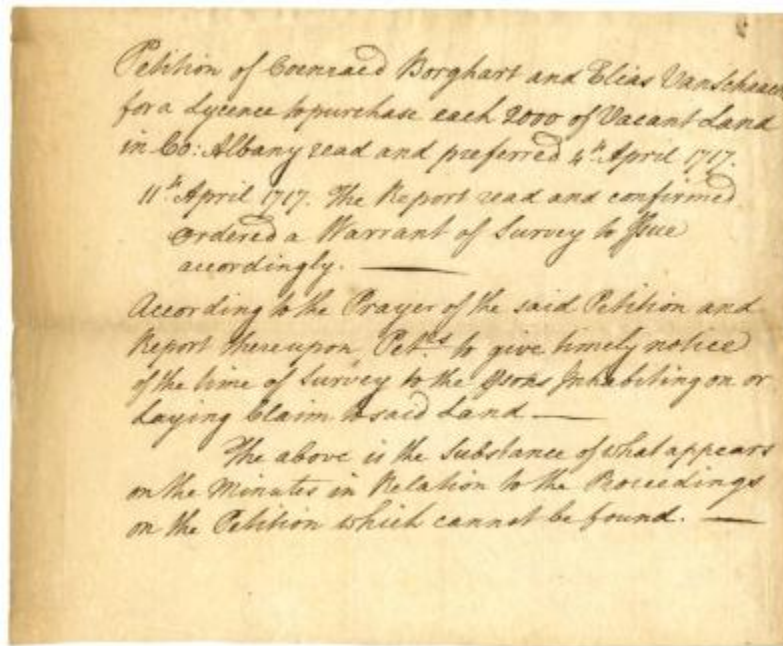 Petition of Coenraed Borghart and Elias VanSchaack
for a Lycence to purchase each 2000 of Vacant Land
in Co: Albany read and preferred 4th April 1717.
11th April 1717. The Report read and confirmed
Ordered a Warrant of Survey to Issue
accordingly. —
According to the Prayer of the said Petition and
Report thereupon, Petrs to give timely notice
of the time of Survey to the psons Inhabiting on or
Laying Claim to said Land —
The above is the Substance of what appears
on the Minutes in Relation to the Proceedings
on the Petition which cannot be found. —